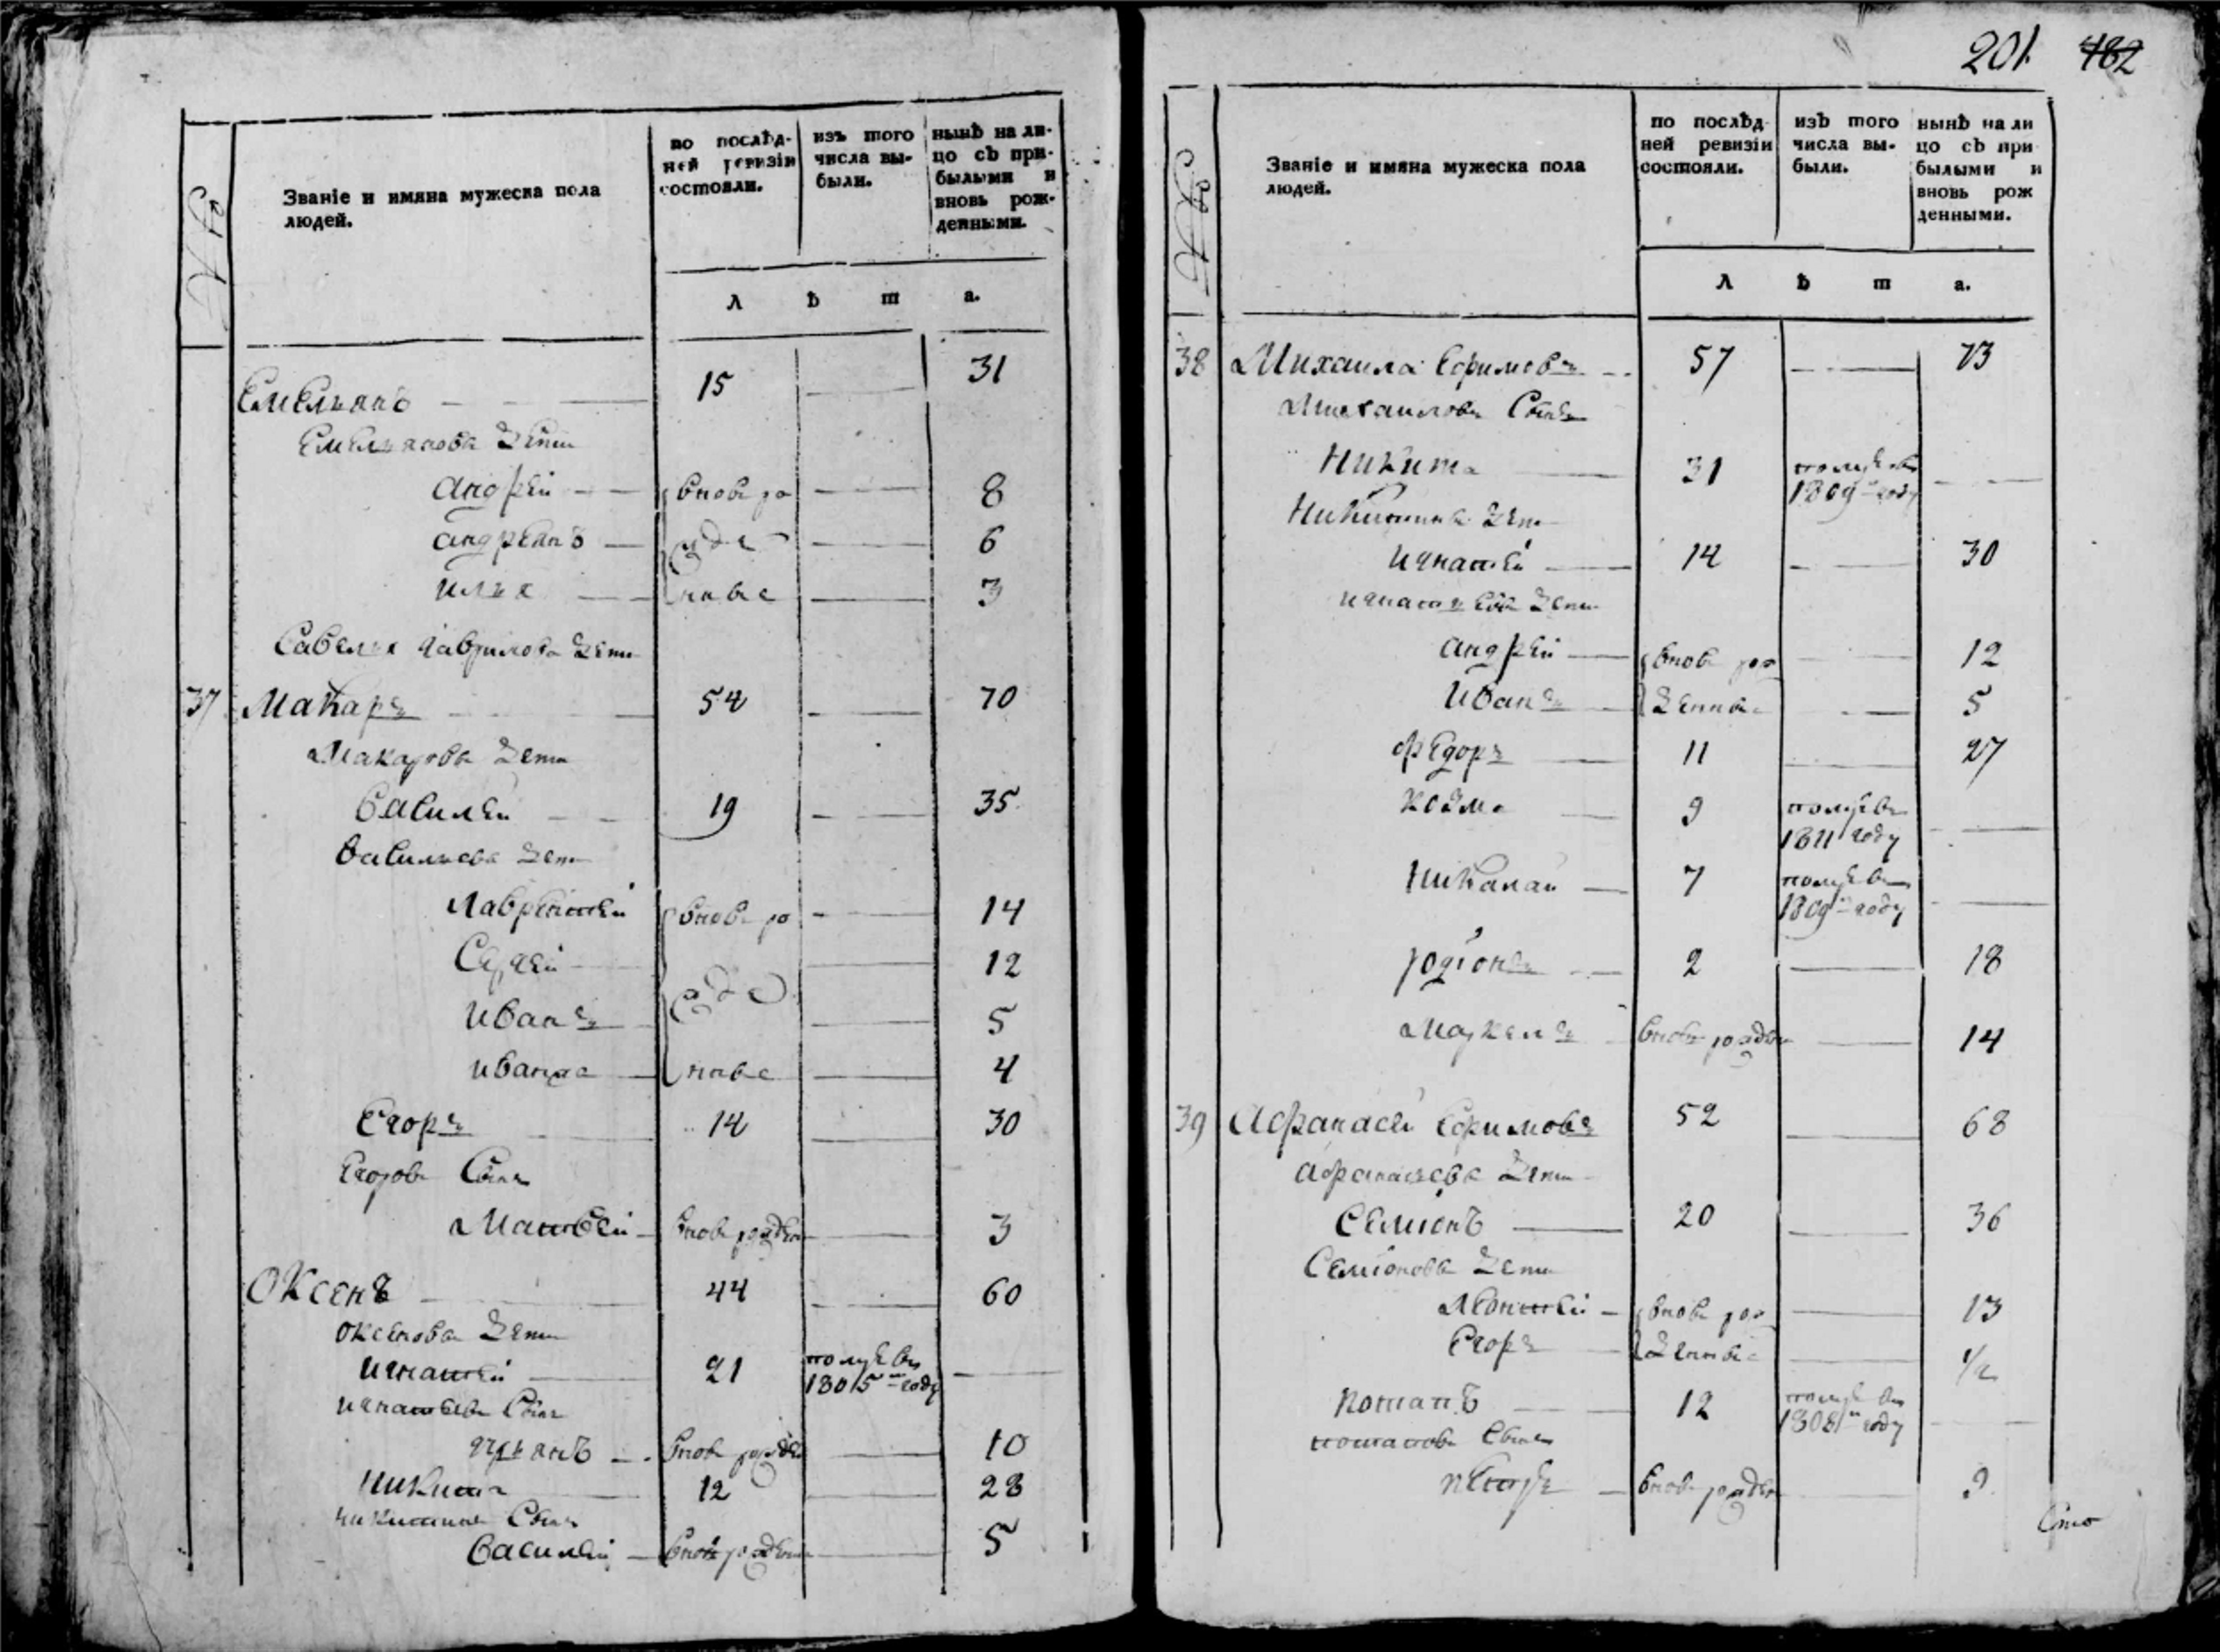 Званіе и имяна мужеска пола
людей.
по послѣд-
ней ревизіи
состояли.
изъ того
числа вы-
были.
нынѣ на ли-
цо съ при-
былыми и
вновь рож-
денными.
л ѣ т а.
Емельянъ 15 31
Емельянова дети
андрей вновь ро 8
андреянъ жде 6
илья нные 3
Савелья гаврилова дети
37 Макаръ 54 70
Макарова дети
Василей 19 35
Васильева дети
Лаврентей вновь ро 14
Сергей 12
жде
иванъ 5
иванже нные 4
Егоръ 14 30
Егоровъ Сынъ
Матвей вновь рожден 3
Оксенъ 44 60
оксенова дети
игнатей 21 померъ въ
1805м году
игнатьевъ Сынъ
вновь рожден 10
никита 12 28
никитинъ Сынъ
Василей вновь рожден 5
201 482
Званіе и имяна мужеска пола
людей.
по послѣд-
ней ревизіи
состояли.
изъ того
числа вы-
были.
нынѣ на ли
цо съ при
былыми и
вновь рож
денными.
л ѣ т а.
38 Михаила Ефимовъ 57 73
Михаиловъ Сынъ
Никита 31 померъ въ
1809м году
Никитины дети
игнатей 14 30
игнатьевы дети
андрей вновь рож 12
иванъ денные 5
федоръ 11 27
козма 9 померъ въ
1811 году
николай 7 померъ въ
1809м году
родіонъ 2 18
Маркелъ вновь рожден 14
39 Афанасей Ефимовъ 52 68
афанасьева дети
Семіонъ 20 36
Семіонова дети
Леонтей вновь рож 13
Егоръ денные 1/2
потапъ 12 померъ въ
1808м году
потаповъ Сынъ
петръ вновь рожден 9
Сто